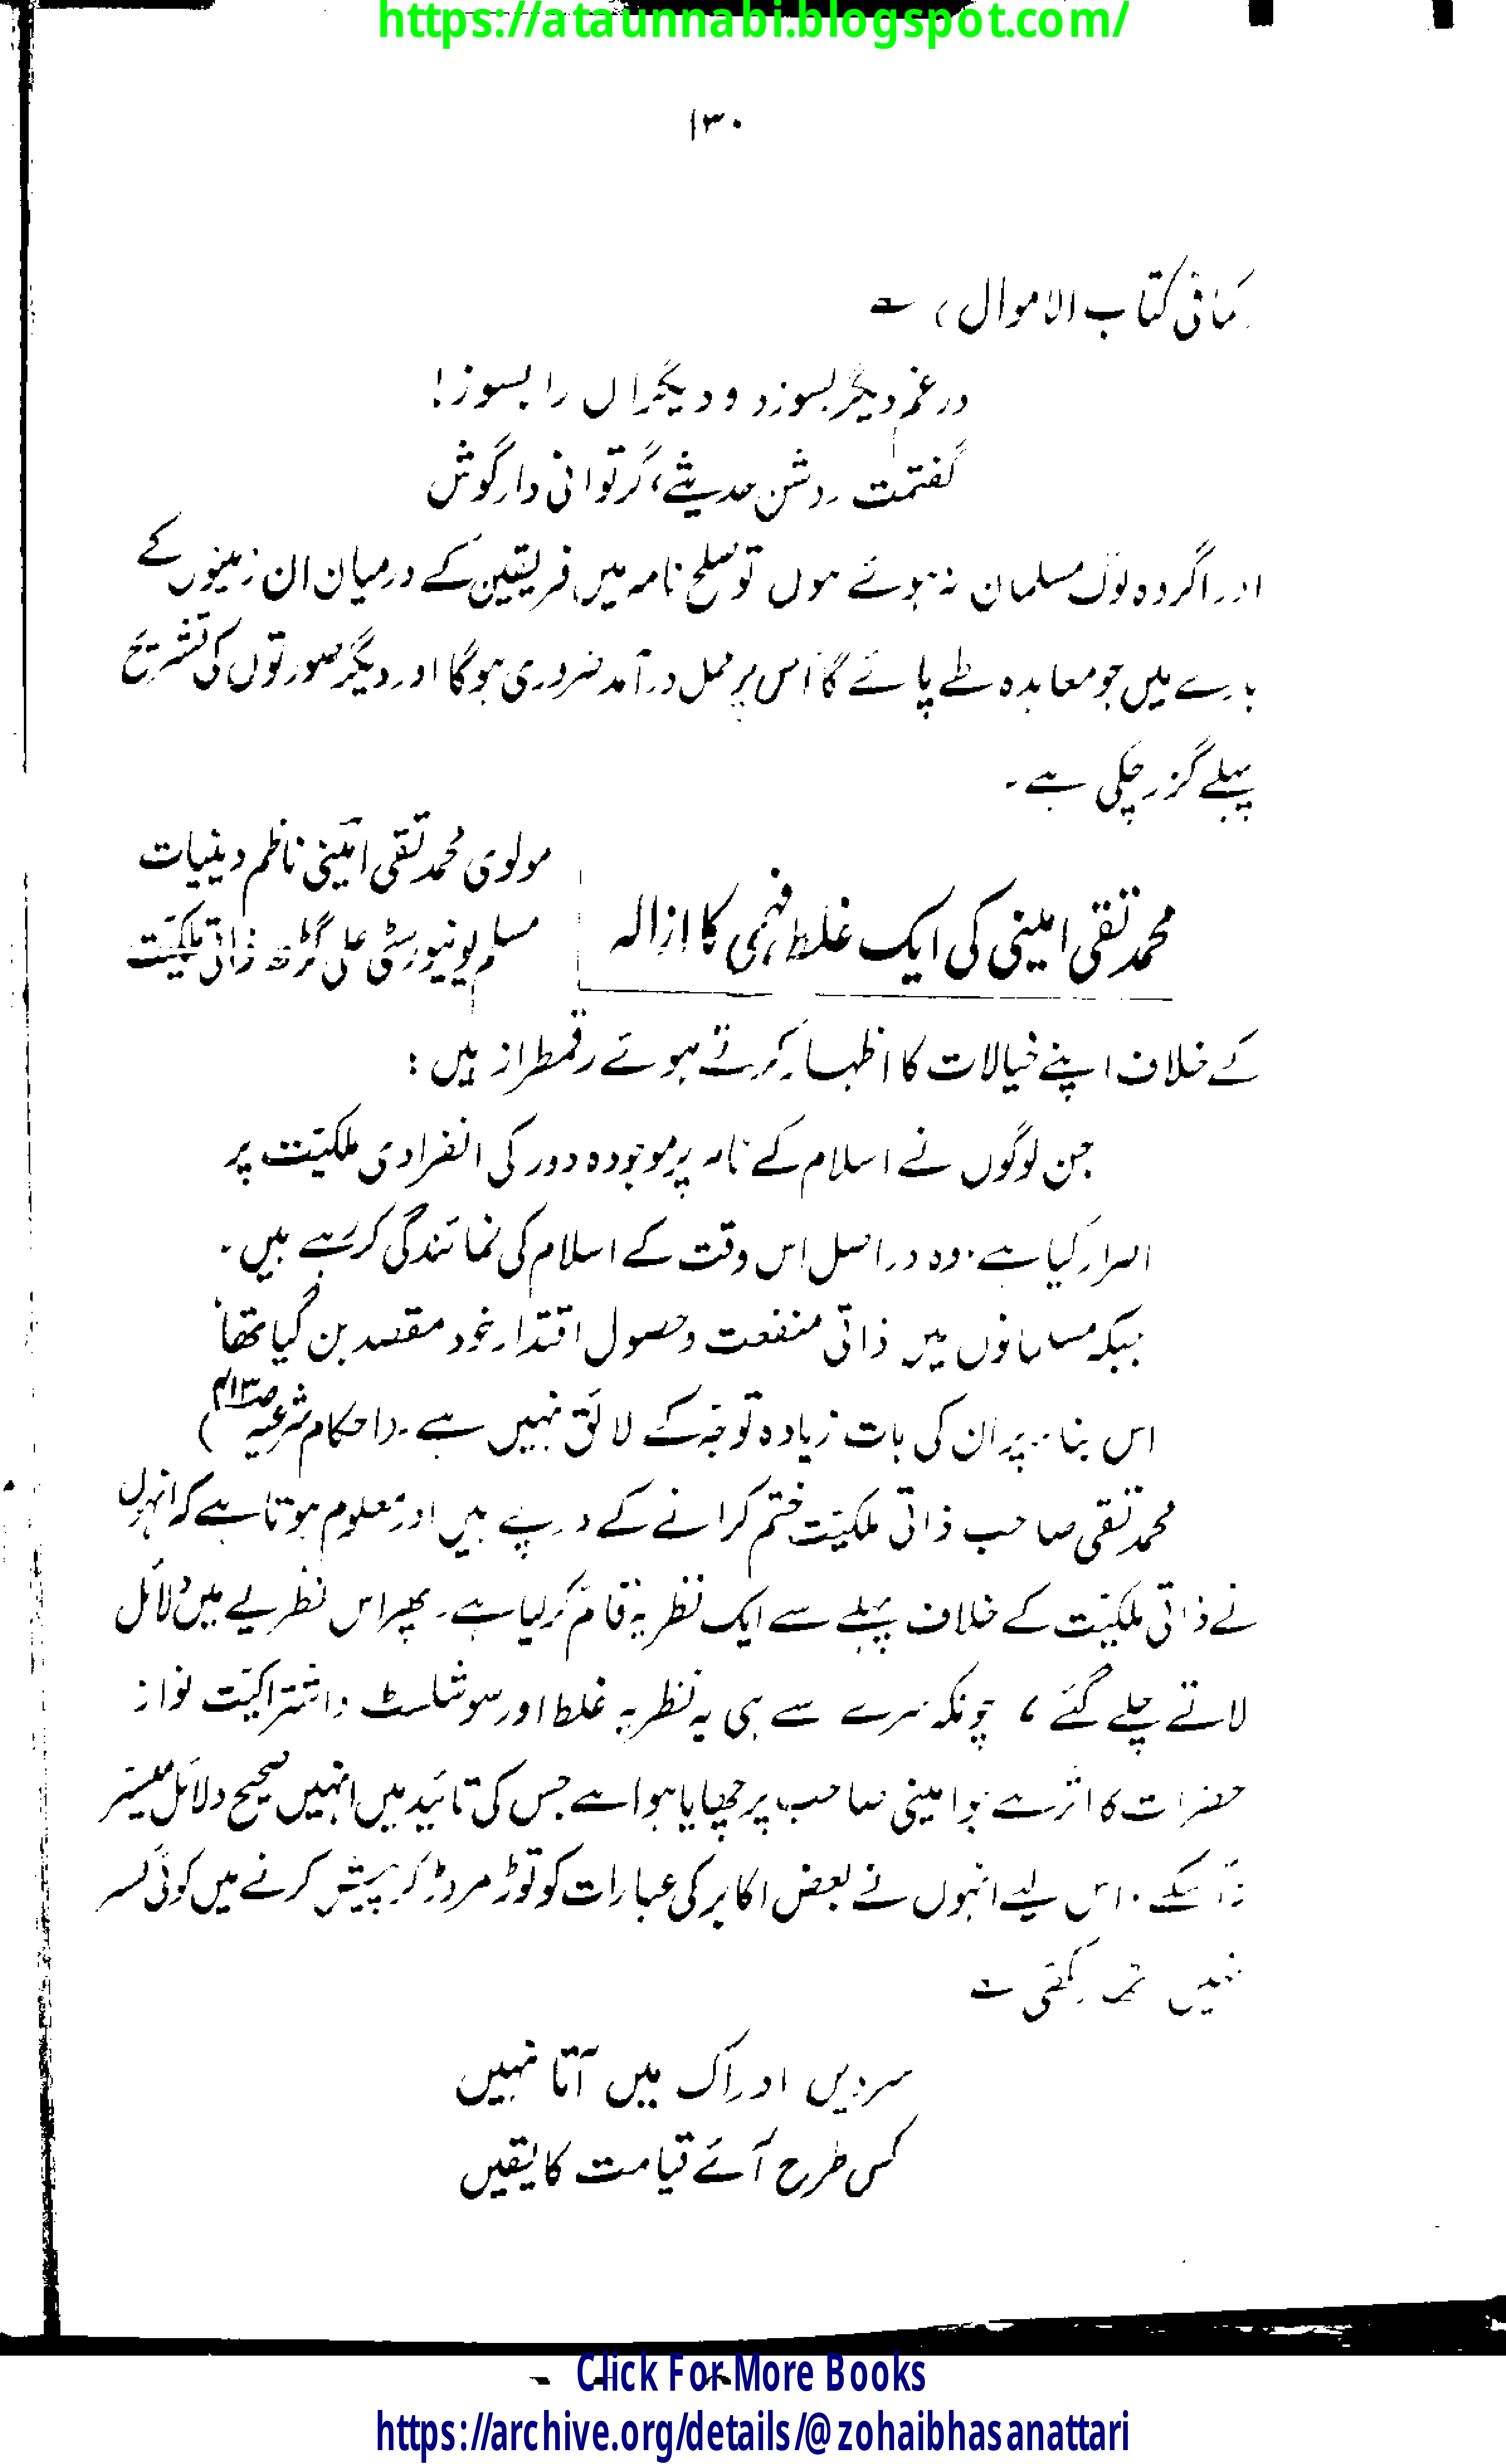 https://ataunnabi.blogspot.com/
۱۳۰
کمافی کتاب الاموال)
در غم دیگر بسوزد و دیگراں را بسوز!
گفتمت روشن حدیثے، گر توانی دار گوش
اور اگر وہ لوگ مسلمان نہ ہوئے ہوں تو صلح نامہ میں فریقین کے درمیان ان زمینوں کے
بارے میں جو معاہدہ طے پائے گا اس پر عمل درآمد ضروری ہوگا اور دیگر صورتوں کی تشریح
پہلے گزر چکی ہے۔
محمد تقی امینی کی ایک غلط فہمی کا ازالہ
مولوی محمد تقی امینی ناظم دینیات
مسلم یونیورسٹی علی گڑھ ذاتی ملکیت
کے خلاف اپنے خیالات کا اظہار کرتے ہوئے رقمطراز ہیں :
جن لوگوں نے اسلام کے نام پر موجودہ دور کی انفرادی ملکیت پر
اصرار کیا ہے۔ وہ دراصل اس وقت کے اسلام کی نمائندگی کر رہے ہیں۔
جبکہ مسلمانوں میں ذاتی منفعت و حصول اقتدار خود مقصد بن گیا تھا
اس بنا پر ان کی بات زیادہ توجہ کے لائق نہیں ہے۔ (احکام شرعیہ
محمد تقی صاحب ذاتی ملکیت ختم کرانے کے درپے ہیں اور معلوم ہوتا ہے کہ انہوں
نے ذاتی ملکیت کے خلاف پہلے سے ایک نظریہ قائم کر لیا ہے۔ پھر اس نظریے میں دلائل
لاتے چلے گئے، چونکہ سرے سے ہی یہ نظریہ غلط اور سوشلسٹ و اشتراکیت نواز
حضرات کا اثر ہے جو امینی صاحب پر چھایا ہوا ہے جس کی تائید میں انہیں صحیح دلائل میسر
نہ آ سکے۔ اس لیے انہوں نے بعض اکابر کی عبارات کو توڑ مروڑ کر پیش کرنے میں کوئی کسر
نہیں رکھی
سردیں ادراک میں آتا نہیں
کس طرح آئے قیامت کا یقیں
Click For More Books
https://archive.org/details/@zohaibhasanattari